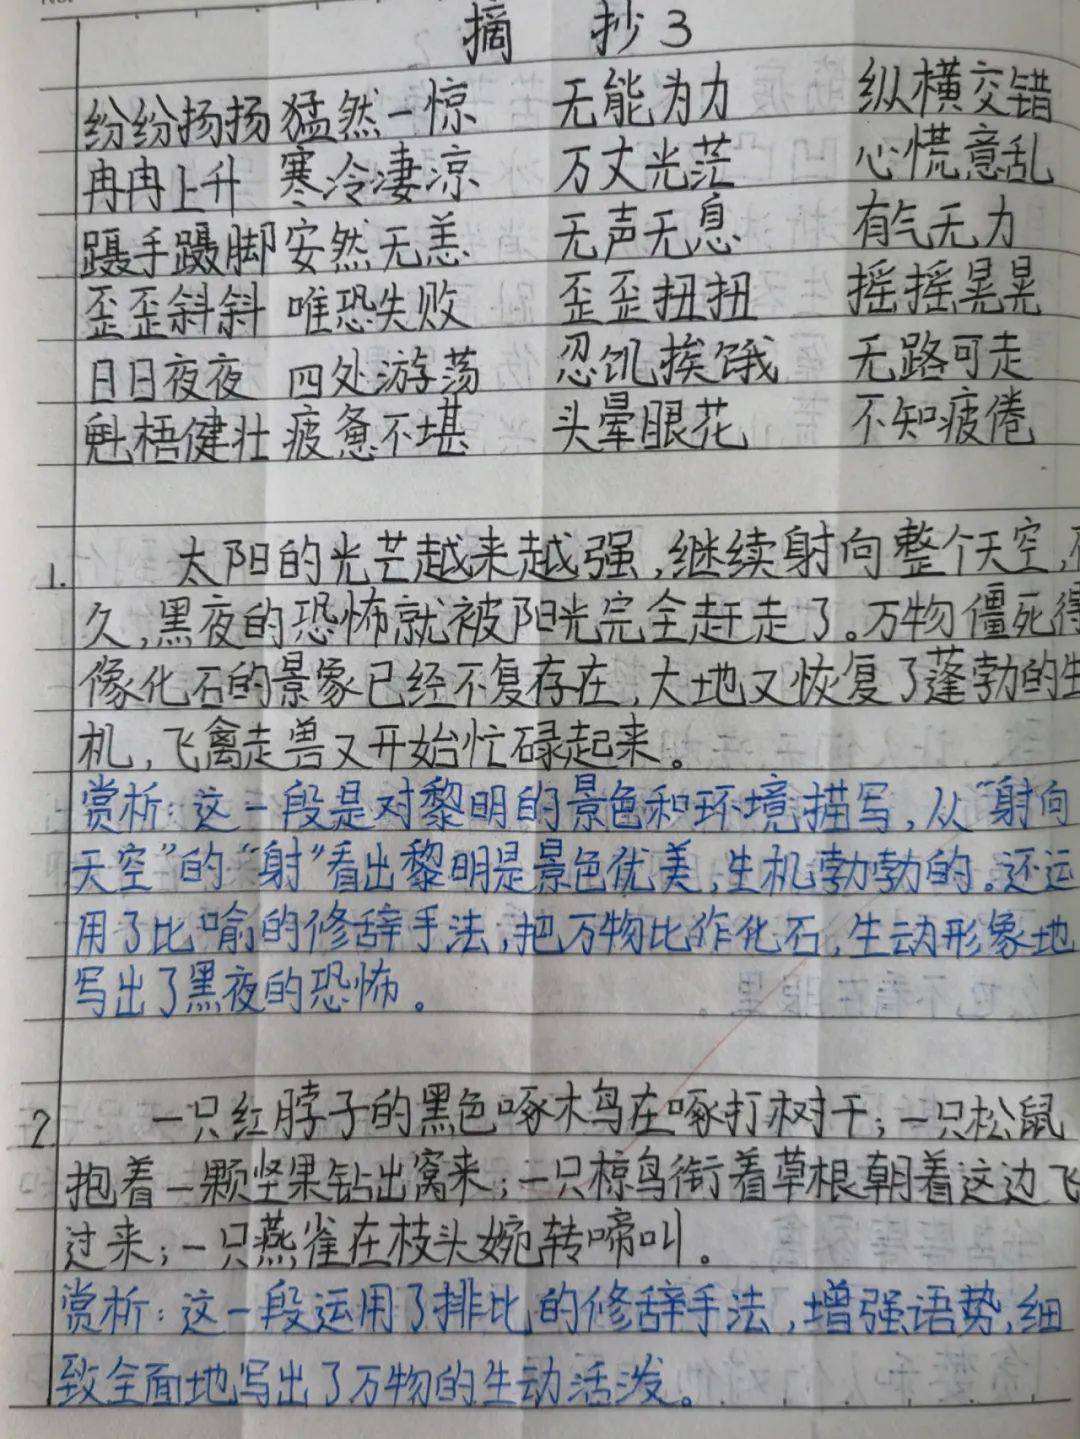 摘 抄3
纷纷扬扬 猛然一惊 无能为力 纵横交错
冉冉上升 寒冷凄凉 万丈光茫 心慌意乱
蹑手蹑脚 安然无恙 无声无息 有气无力
歪歪斜斜 唯恐失败 歪歪扭扭 摇摇晃晃
日日夜夜 四处游荡 忍饥挨饿 无路可走
魁梧健壮 疲惫不堪 头晕眼花 不知疲倦
1. 太阳的光芒越来越强,继续射向整个天空,不
久,黑夜的恐怖就被阳光完全赶走了。万物僵死得
像化石的景象已经不复存在,大地又恢复了蓬勃的生
机,飞禽走兽又开始忙碌起来。
赏析:这一段是对黎明的景色和环境描写,从“射向
天空”的“射”看出黎明是景色优美,生机勃勃的。还运
用了比喻的修辞手法,把万物比作化石,生动形象地
写出了黑夜的恐怖。
2. 一只红脖子的黑色啄木鸟在啄打树干;一只松鼠
抱着一颗坚果钻出窝来;一只椋鸟衔着草根朝着这边飞
过来;一只燕雀在枝头婉转啼叫。
赏析:这一段运用了排比的修辞手法,增强语势,细
致全面地写出了万物的生动活泼。